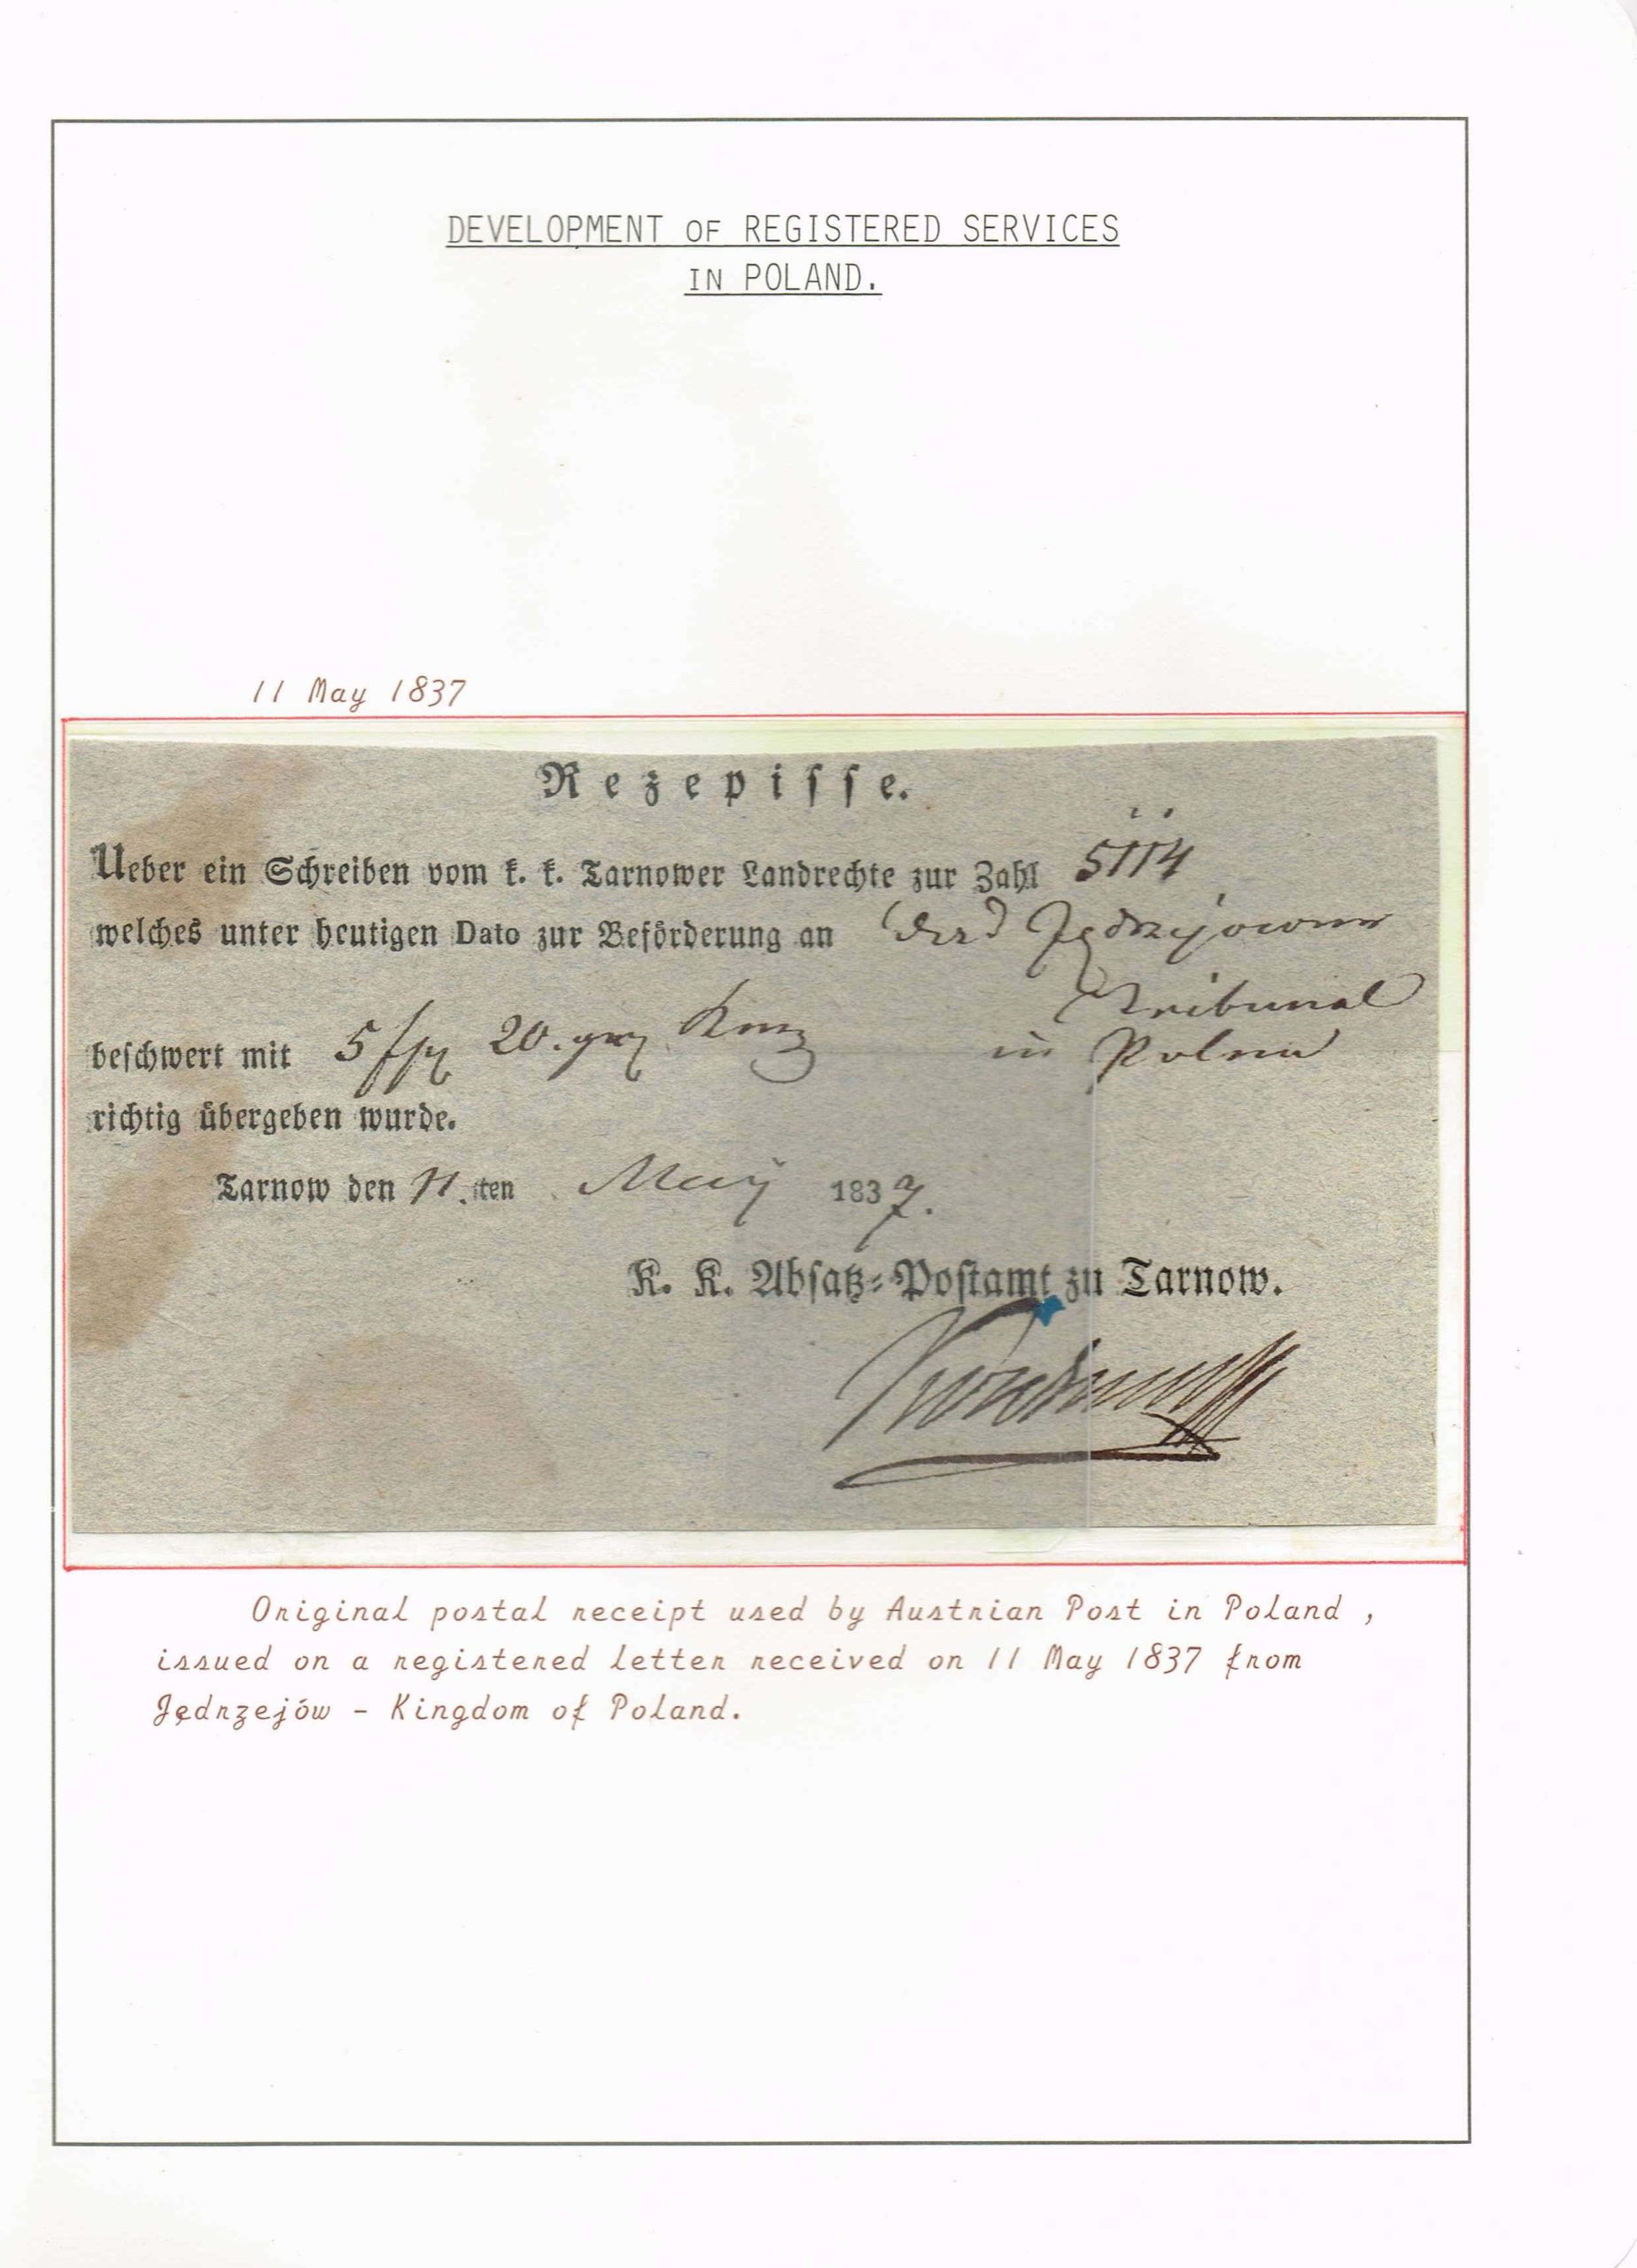 DEVELOPMENT OF REGISTERED SERVICES
IN POLAND.
11 May 1837
Rezepisse.
Ueber ein Schreiben vom k. k. Tarnower Landrechte zur Zahl 5114
welches unter heutigen Dato zur Beförderung an
Tribunal
beschwert mit 5 20. in Polen
richtig übergeben wurde.
Tarnow den 11.ten May 1837.
K. K. Absatz-Postamt zu Tarnow.
Original postal receipt used by Austrian Post in Poland ,
issued on a registered letter received on 11 May 1837 from
Jędrzejów - Kingdom of Poland.